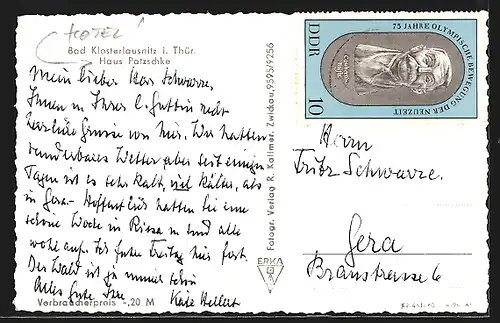 HOTEL
Bad Klosterlausnitz i. Thür.
Haus Patzschke
Mein lieber Herr Schwarze,
Ihnen u. Ihrer l. Gattin recht
herzliche Grüsse von hier. Wir hatten
wunderbares Wetter aber seit einigen
Tagen ist es sehr kalt, viel kälter, als
in Gera. Hoffentlich hatten Sie eine
schöne Woche in Riesa u. sind alle
wohlauf. Ich fahre Freitag hier fort.
Der Wald ist ja immer schön
Alles Gute Ihre Käte Hellert
Verbraucherpreis -,20 M
Fotogr. Verlag R. Kallmer, Zwickau, 9595/9256
ERKA
DDR
75 JAHRE OLYMPISCHE BEWEGUNG DER NEUZEIT
10
Herrn
Fritz Schwarze.
Gera
Braustrasse 6